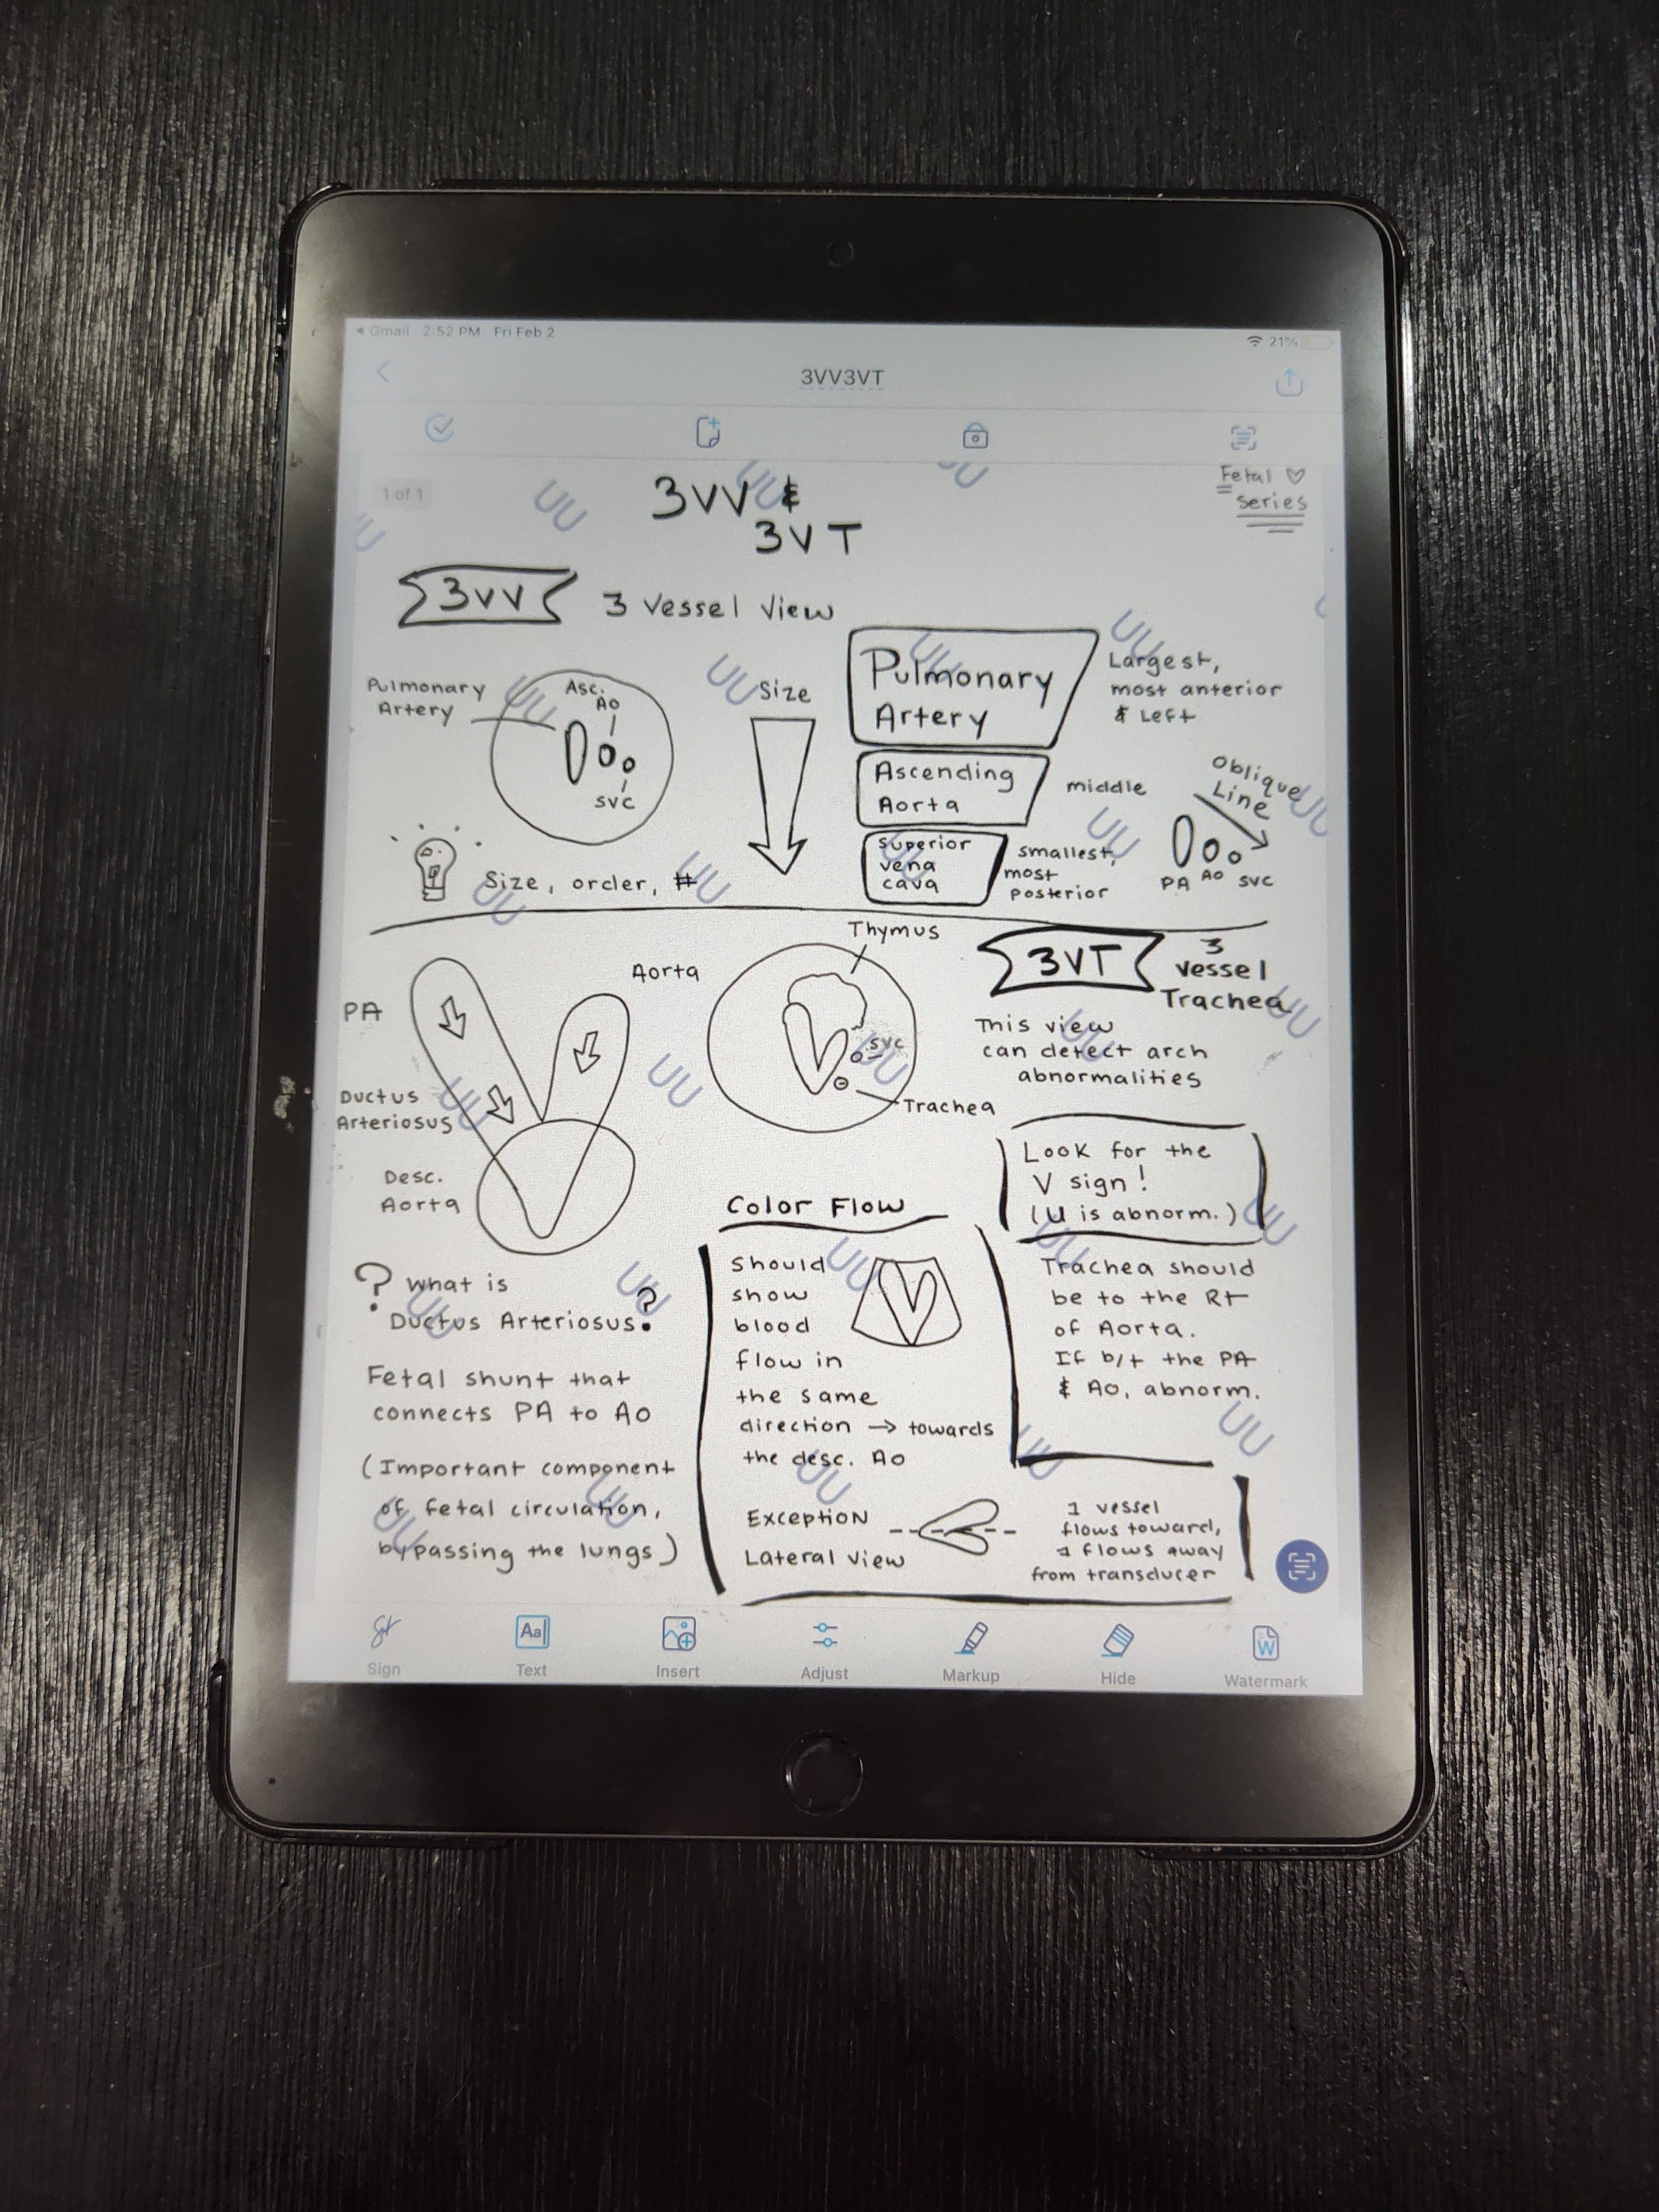 Gmail 2:52 PM Fri Feb 2
21%
3VV3VT
1 of 1
Fetal ♡
Series
3VV &
3VT
3VV
3 Vessel View
Pulmonary
Artery
Asc.
Ao
SVC
Size, order, #
Size
Pulmonary
Artery
Largest,
most anterior
& Left
Ascending
Aorta
middle
superior
vena
cava
smallest,
most
posterior
Oblique
Line
PA Ao SVC
PA
Aorta
Ductus
Arteriosus
Desc.
Aorta
Thymus
SVC
Trachea
3VT
3
Vessel
Trachea
This view
can detect arch
abnormalities
Look for the
V sign!
(U is abnorm.)
Trachea should
be to the Rt
of Aorta.
If b/t the PA
& Ao, abnorm.
? What is
Ductus Arteriosus?
Fetal shunt that
connects PA to Ao
(Important component
of fetal circulation,
bypassing the lungs)
Color Flow
Should
show
blood
flow in
the same
direction → towards
the desc. Ao
Exception
Lateral view
1 vessel
flows toward,
1 flows away
from transducer
UU
Sign
Text
Insert
Adjust
Markup
Hide
Watermark